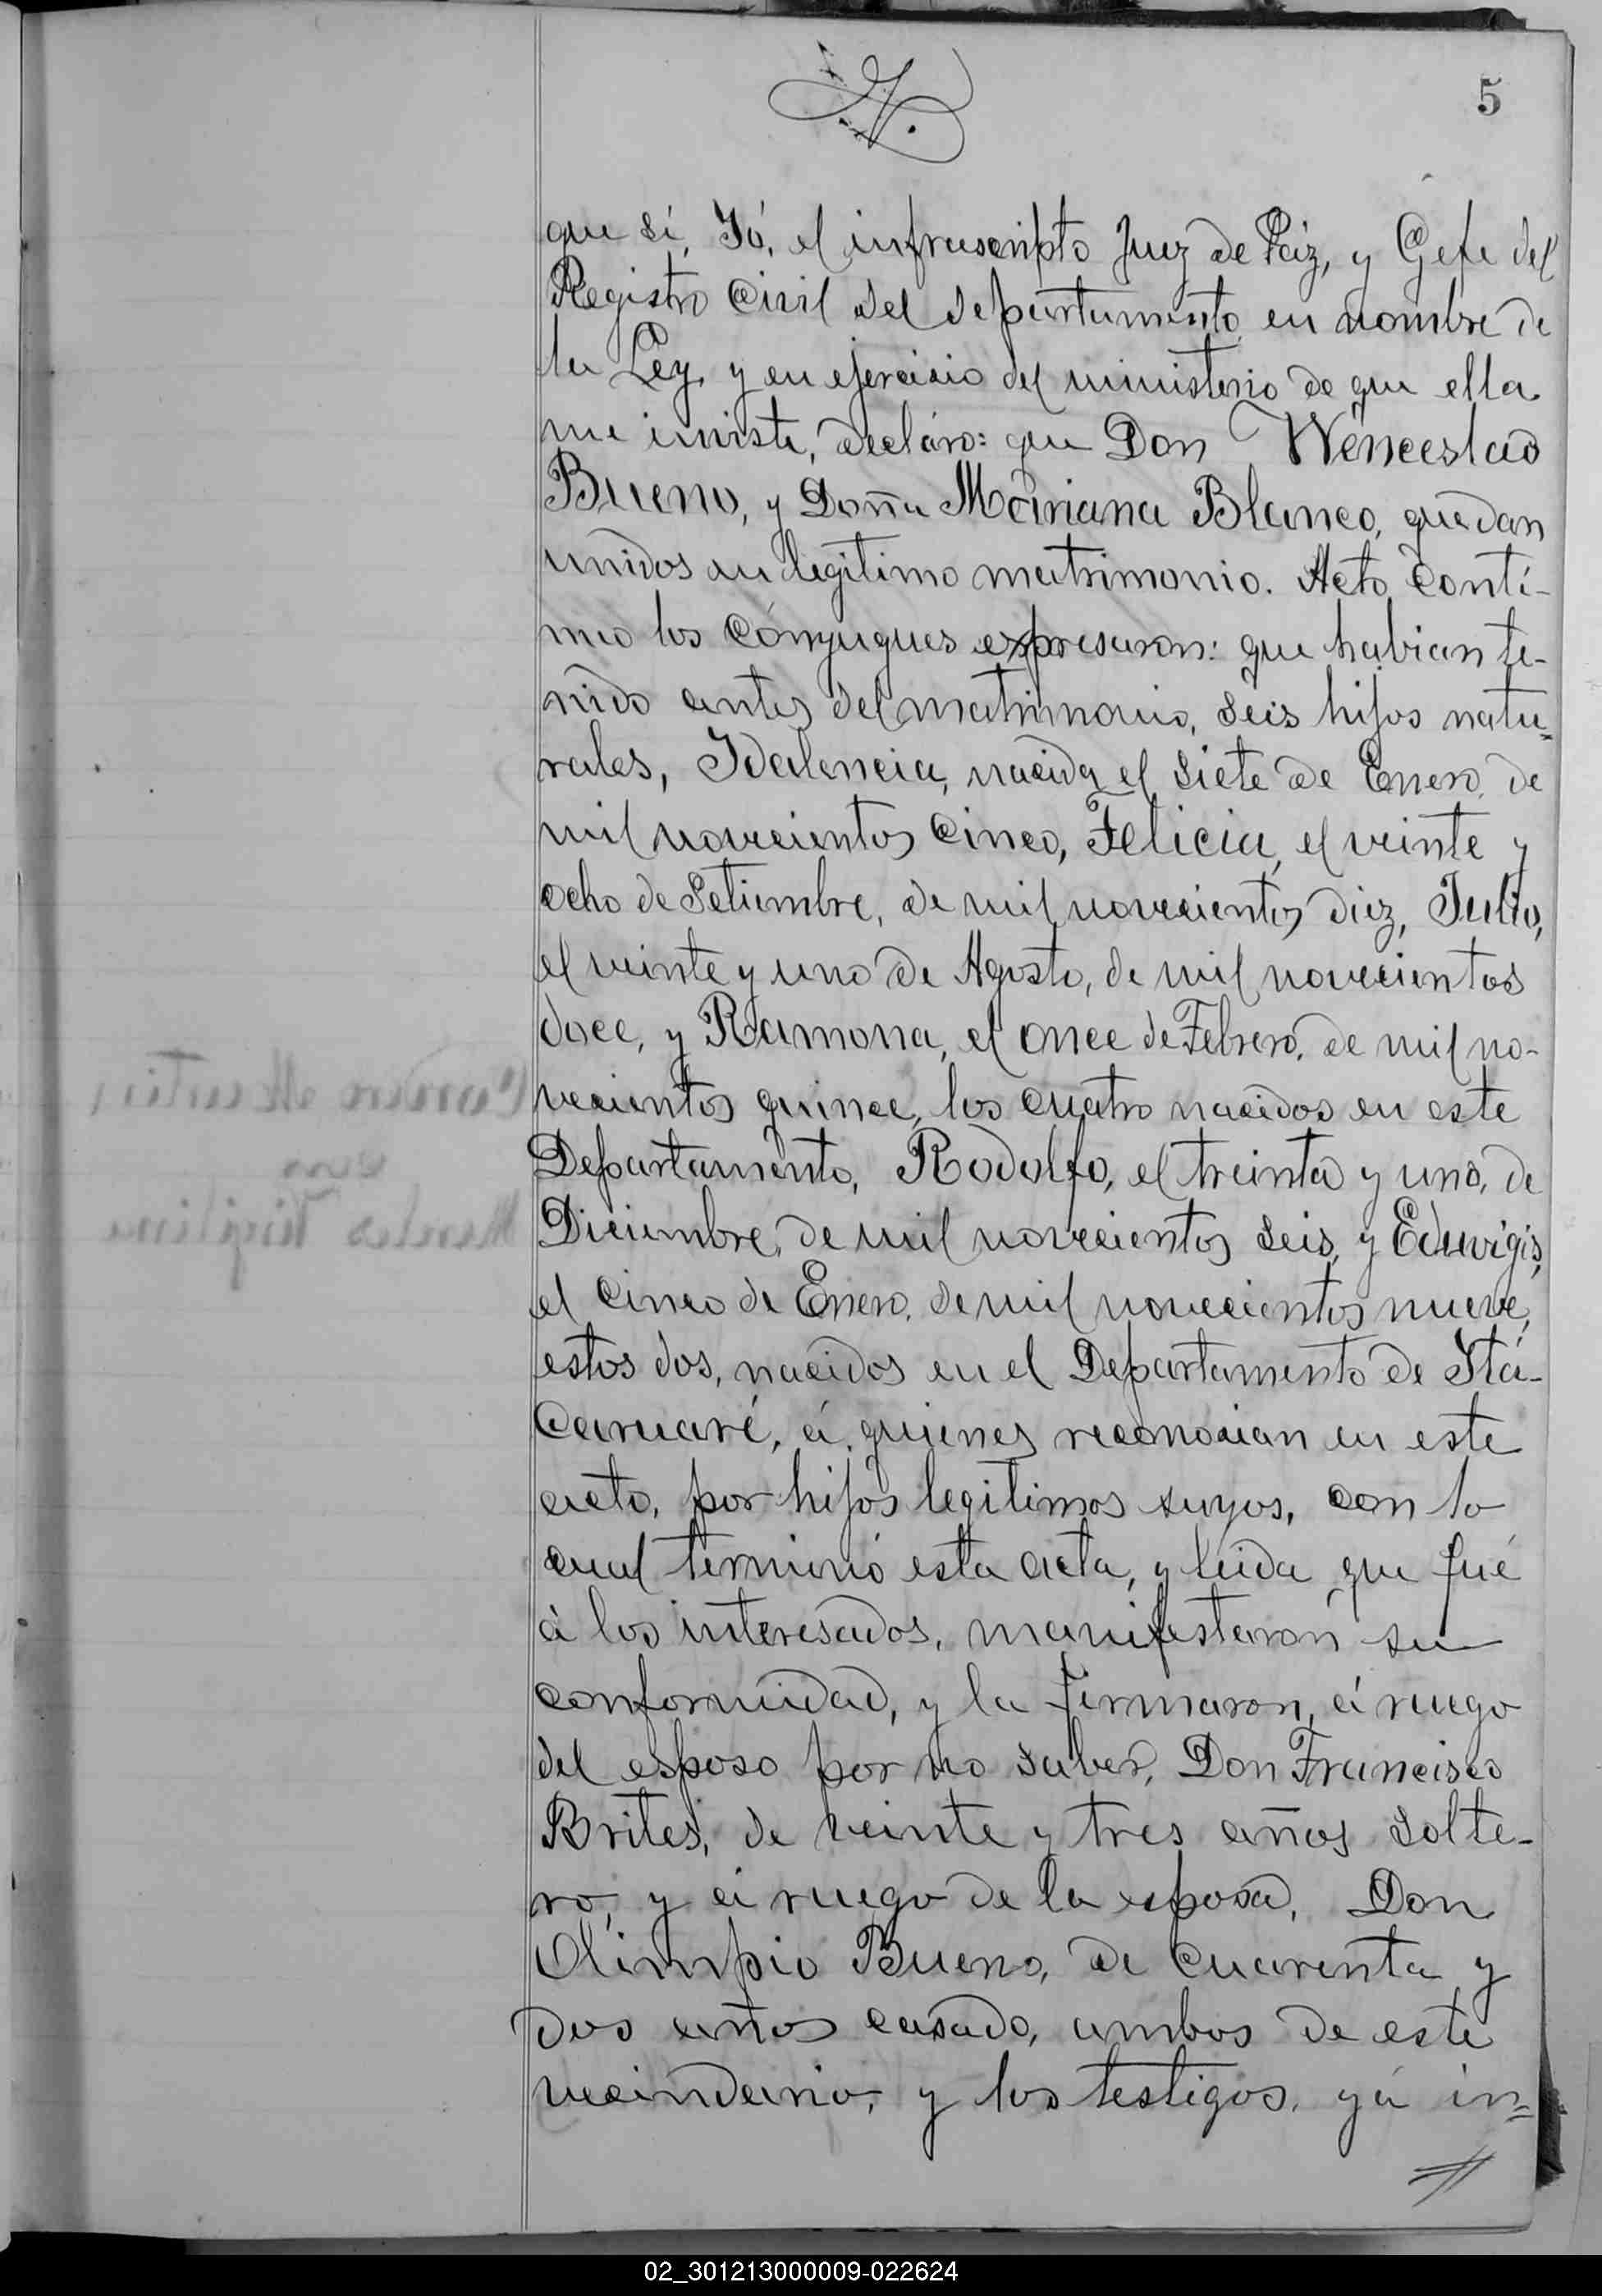 5
que sí, Yó, el infrascripto Juez de Páz, y Gefe del
Registro Civil del departamento en nombre de
la Ley, y en ejercisio del ministerio de que ella
me inviste, decláro: que Don Wenceslao
Bueno, y Doña Mariana Blanco, quedan
unidos en legitimo matrimonio. Acto contí-
nuo los cónyugues expresaron: que habian te-
nido antes del matrimonio, seis hijos natu-
rales, Idalencia, nacida el siete de Enero, de
mil novecientos cinco, Felicia, el veinte y
ocho de Setiembre, de mil novecientos diez, Julio,
el veinte y uno de Agosto, de mil novecientos
doce, y Ramona, el once de Febrero, de mil no-
vecientos quince, los cuatro nacidos en este
Departamento, Rodolfo, el treinta y uno, de
Diciembre, de mil novecientos seis, y Eduvigis,
el cinco de Enero, de mil novecientos nueve,
estos dos, nacidos en el Departamento de Itá-
Caruaré, á quienes reconocian en este
acto, por hijos legitimos suyos, con lo
cual terminó esta acta, y leida que fué
á los interesados, manifestaron su
conformidad, y la firmaron, á ruego
del esposo por no saber, Don Francisco
Brites, de veinte y tres años solte-
ro, y á ruego de la esposa, Don
Olimpio Bueno, de cuarenta y
dos años casado, ambos de este
vecindario, y los testigos, yá in=
02_301213000009-022624